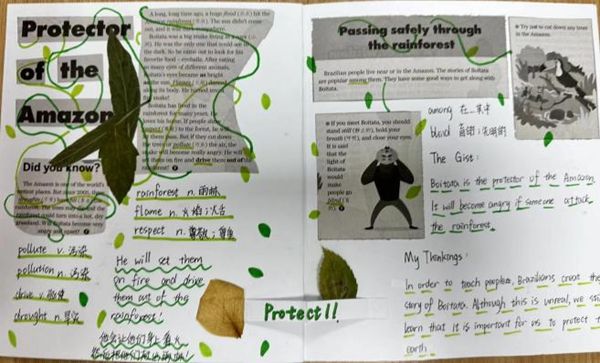 Protector
of the
Amazon
A long, long time ago, a huge flood
hit the
rainforest
The sun didn't come
out, and it was dark everywhere.
Boitata was a big snake living in a
He was the only one that could see in
the dark. So he came out to look for his
favorite food – eyeballs. After eating
so many eyes of different animals,
Boitata's eyes became as bright
as the sun. Flames
along its body. He turned
of
Boitata has lived in the
rainforest for many years.
loves his home. If people
respect
to the forest, he
pass. But if they cut down
the trees or pollute
the air, the
snake will become really angry. He will
set them on fire and drive them out of the
rainforest!
Did you know?
The Amazon is one of the world's
wettest places. But since 2005,
droughts
rainforest could turn into a hot, dry
grassland. Will Boitata become very
angry and
rainforest n. 雨林
flame n. 火焰；火舌
respect n. 尊敬；尊重
pollute v. 污染
pollution n. 污染
drive v. 驱使
drought n. 旱灾
He will set them
on fire and drive
them out of the
rainforest!
他会让他们身上着火
Protect!!
Passing safely through
the rainforest
Brazilian people live near or in the Amazon. The stories of Boitata
are popular among them. They have some good ways to get along with
Boitata.
Try not to cut down any trees
in the Amazon.
If you meet Boitata, you should
stand still
, hold your
breath
, and close your eyes.
It is said
that the
light of
Boitata
would
make
people go
blind
among 在…其中
blind 盲的；失明的
The Gist:
Boitata is the protector of the Amazon.
It will become angry if someone attack
the rainforest.
My Thinkings:
In order to teach people, Brazilians creat the
story of Boitata. Although this is unreal, we still
learn that it is important for us to protect the
earth